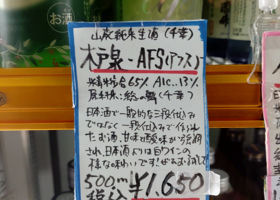 お酒
山廃純米生酒（千葉）
木戸泉-AFS(アフス)
精米歩合65% Alc..13%
原料米:総の舞（千葉）
日本酒で一般的な三段仕込み
ではなく一段仕込みで作られ
たお酒、甘味と酸味が強烈
され、日本酒よりは白ワインの
様な味わいです!ぜひお試し
500ml
税込 ¥1,650